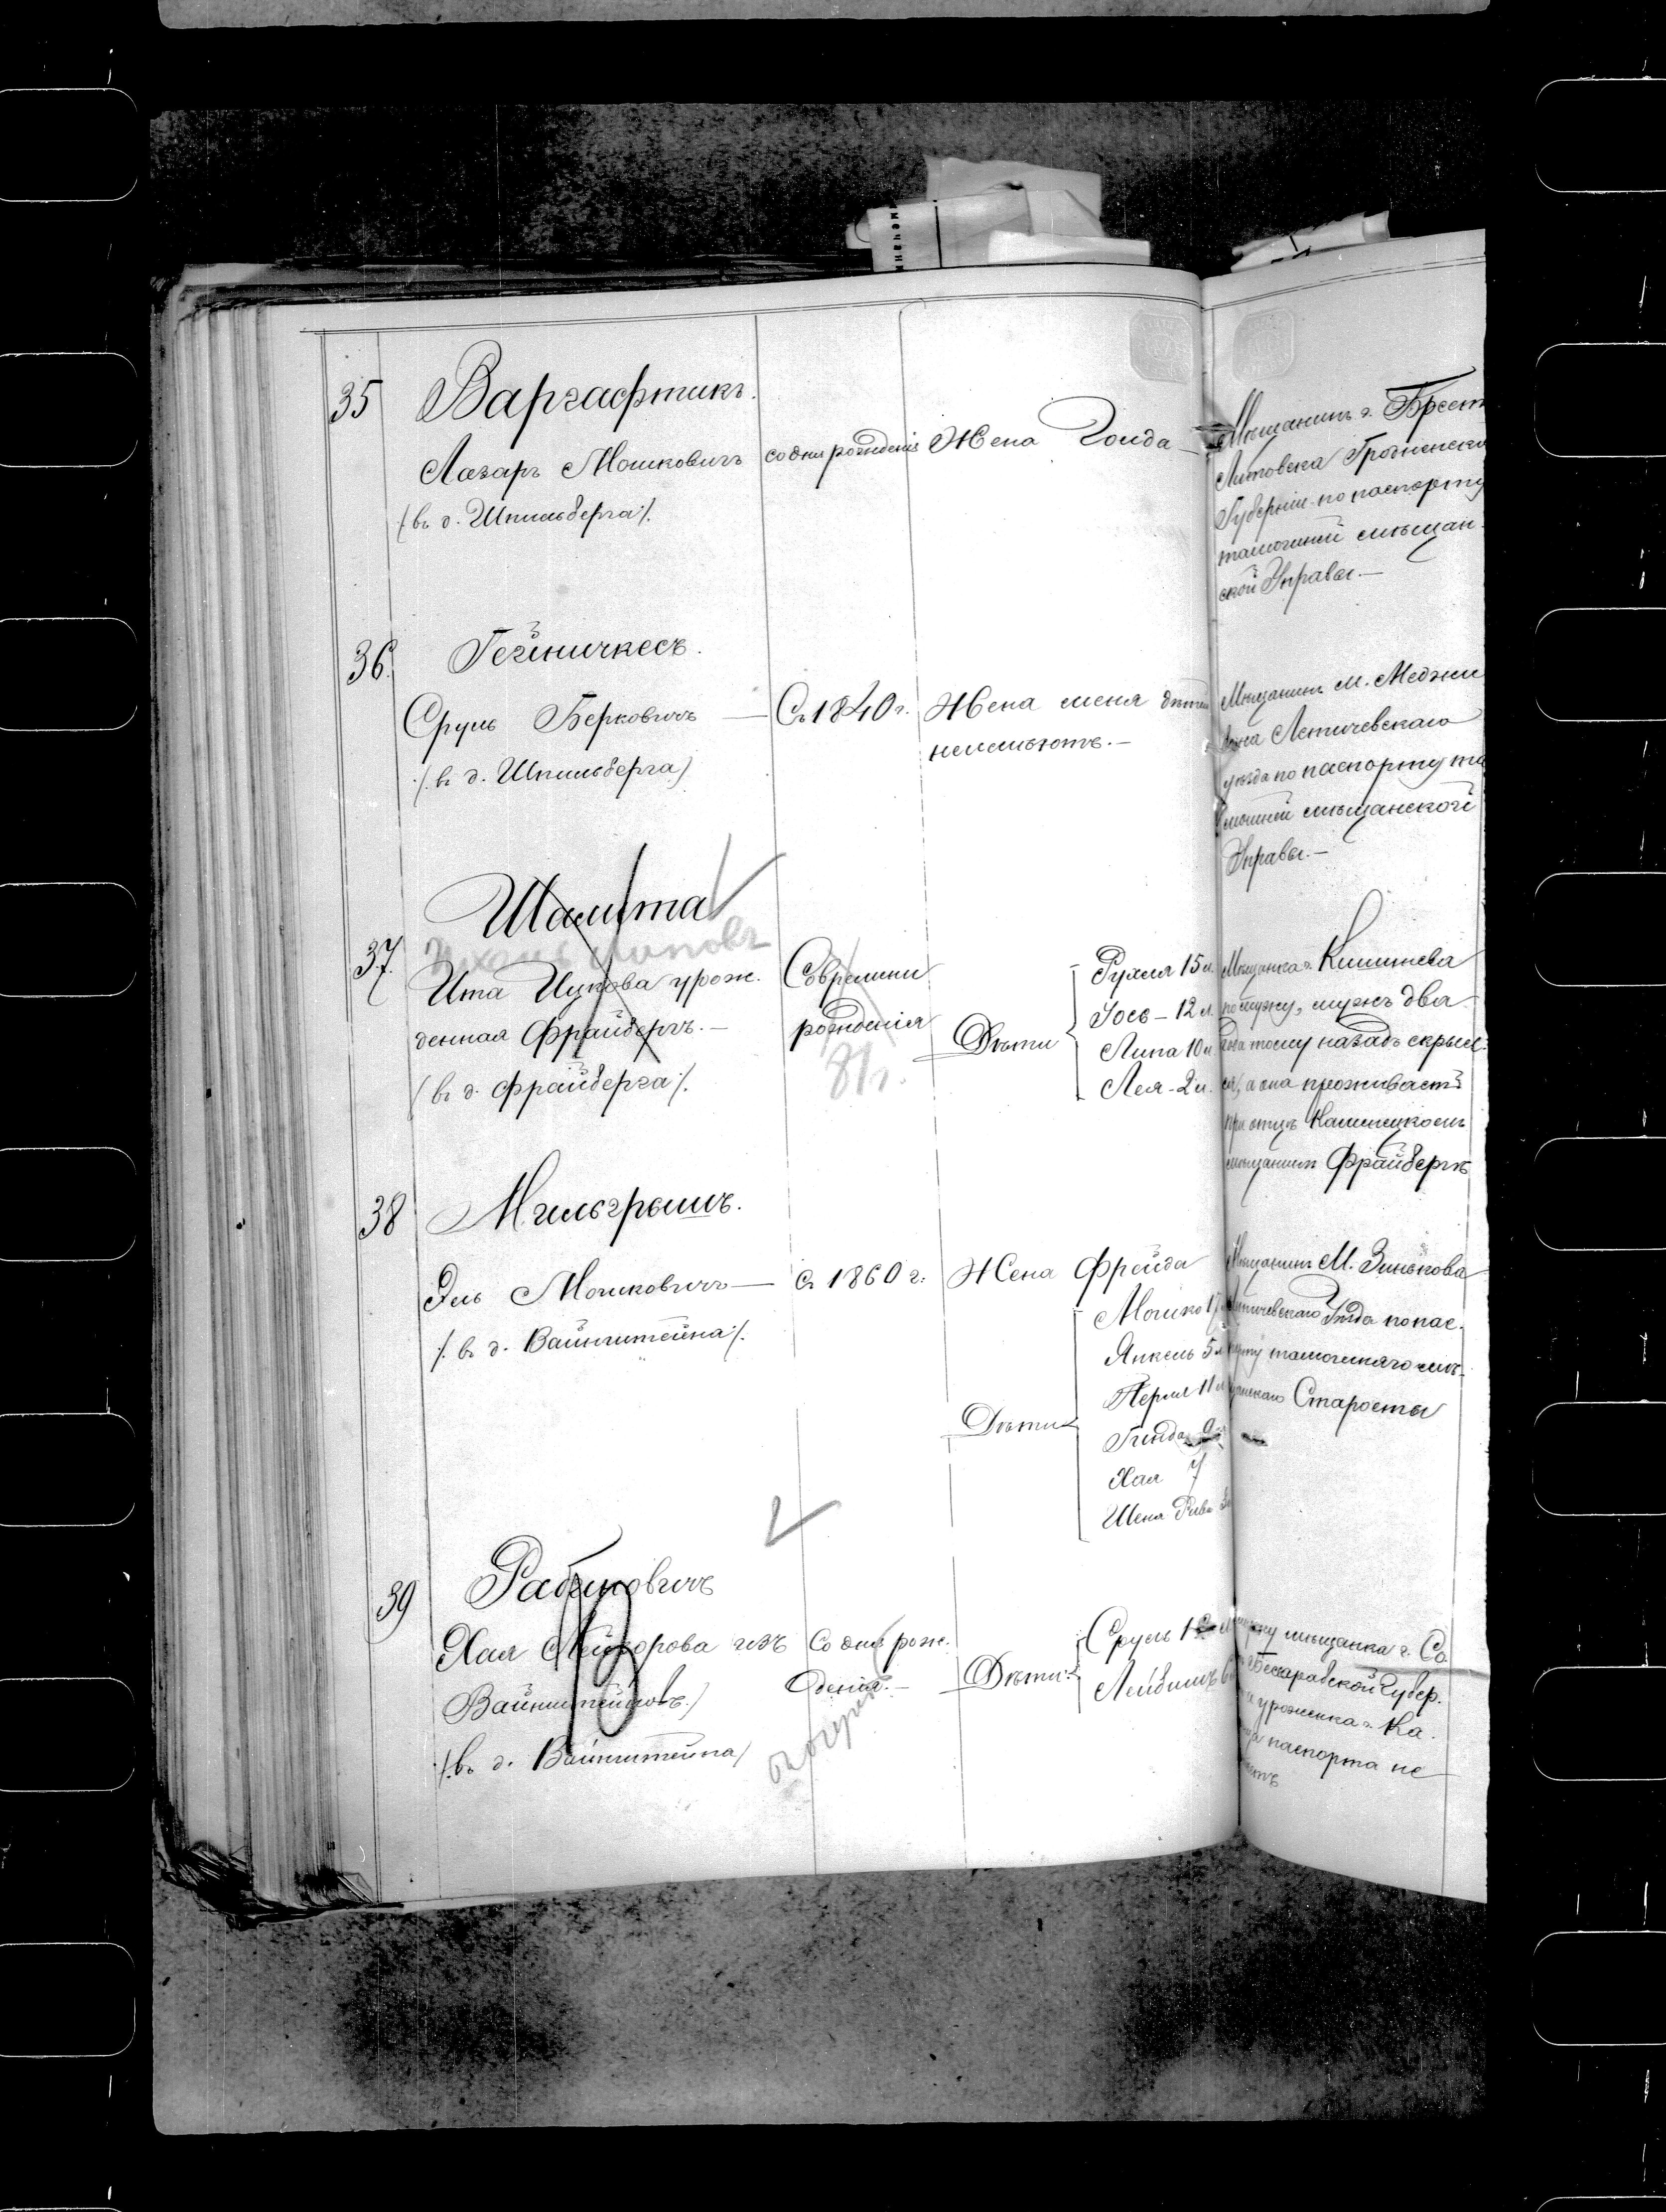 35
Варгафтикъ.
Лазарь Мошковичъ
/:въ д. Шпильберга:/.
со дня рожденія
Жена Гоида
Мѣщанинъ г. Брест
Литовска Гродненско
Губерніи по паспорту
тамошней мѣщан-
ской Управы.—
36.
Гейничкесъ.
Сруль Берковичъ —
/:въ д. Шпильберга/
Съ 1840 г.
Жена меня дѣтей
неимѣютъ.—
Мѣщанинъ м. Меджи
божа Летичевскаго
уѣзда по паспорту та
мошней мѣщанской
Управы.—
37.
Шамита
Ита Ицкова урож.
денная Фрайбергъ.—
/въ д. Фрайберга:/.
Современи
рожденія
81 г.
Дѣти
Рухля 15 л.
Іось - 12 л.
Липа 10 л.
Лея - 2 л.
Мѣщанка г. Кишинева
по мужу, мужъ два
года тому назадъ скрыл-
ся, а она проживаетъ
при отцѣ Каменецкомъ
мѣщанинѣ Фрайбергѣ
38
Мильгрымъ.
Эль Мошковичъ —
/:въ д. Вайнштейна:/.
Съ 1860 г.
Жена Фрейда
Дѣти
Мошко 17
Янкель 5 л
Перля 11 л
Гинда 9
Хая 7
Шеня Рива
Мѣщанинъ М. Зинькова
Летичевскаго Уѣзда по пас-
порту тамошняго мѣ-
щанскаго Старосты
39
Рабиновичъ
Хая Лейзорова изъ
Вайнштейновъ./
/:въ д. Вайнштейна/
Со дня рож-
денія.—
Дѣти:
Сруль
Лейбишъ 6
мужу мѣщанка г. Со
Бессарабской Губер.
уроженка г. Ка.
паспорта не